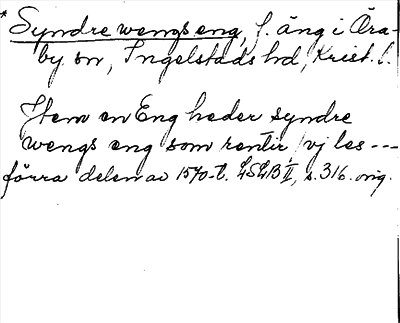 * Syndre wengs eng, f. äng i Öra-
by sn, Ingelstads hd, Krist. l.
Item en Eng heder syndre
wengs eng som rentir vj les ---
förra delen av 1570-t. LSLB II, s. 316. orig.